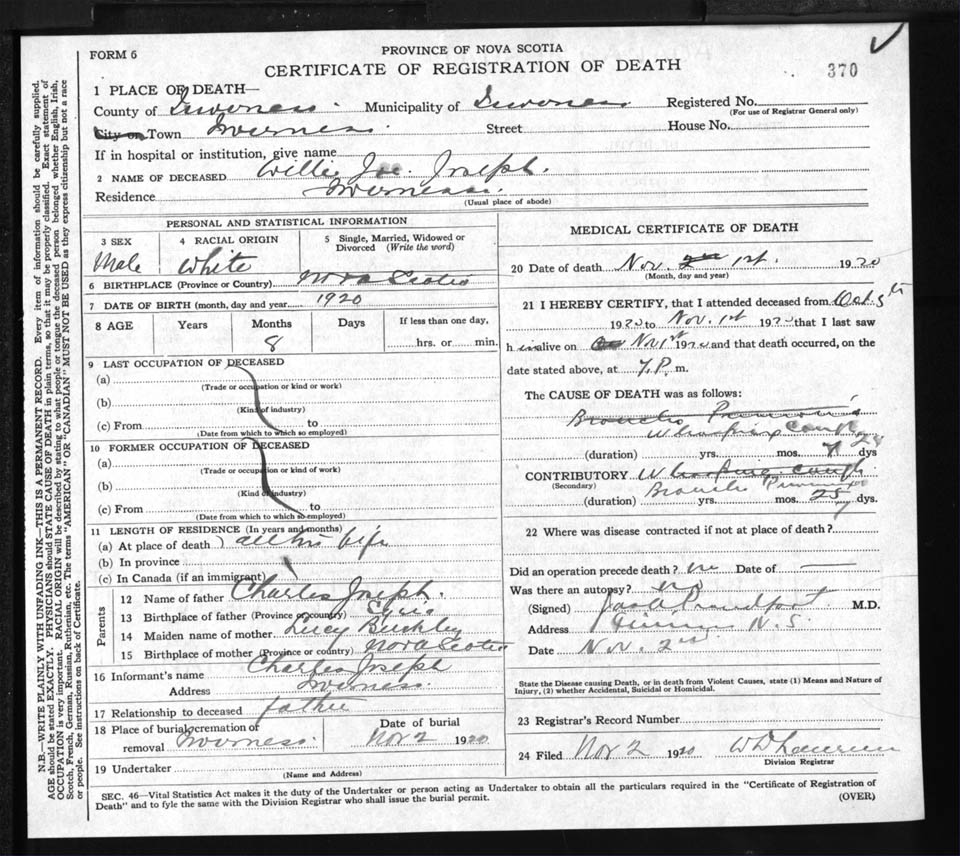 FORM 6
PROVINCE OF NOVA SCOTIA
CERTIFICATE OF REGISTRATION OF DEATH
370
1 PLACE OF DEATH—
County of Inverness. Municipality of Inverness Registered No.
(For use of Registrar General only)
City or Town Inverness. Street House No.
If in hospital or institution, give name
2 NAME OF DECEASED Willie Joe Joseph.
Residence Inverness.
(Usual place of abode)
PERSONAL AND STATISTICAL INFORMATION
3 SEX 4 RACIAL ORIGIN 5 Single, Married, Widowed or Divorced (Write the word)
Male White
6 BIRTHPLACE (Province or Country) Nova Scotia
7 DATE OF BIRTH (month, day and year) 1920
8 AGE Years Months Days If less than one day,
8 hrs. or min.
9 LAST OCCUPATION OF DECEASED
(a)
(Trade or occupation or kind or work)
(b)
(Kind of industry)
(c) From to
(Date from which to which so employed)
10 FORMER OCCUPATION OF DECEASED
(a)
(Trade or occupation or kind of work)
(b)
(Kind of industry)
(c) From to
(Date from which to which so employed)
11 LENGTH OF RESIDENCE (In years and months)
(a) At place of death all his life
(b) In province
(c) In Canada (if an immigrant)
Parents
12 Name of father Charles Joseph.
13 Birthplace of father (Province or country)
14 Maiden name of mother Lucy Buckley
15 Birthplace of mother (Province or country) Nova Scotia
16 Informant's name Charles Joseph
Address Inverness.
17 Relationship to deceased father
18 Place of burial cremation of removal Inverness. Date of burial Nov 2 1920
19 Undertaker
(Name and Address)
MEDICAL CERTIFICATE OF DEATH
20 Date of death Nov. 2nd 1st. 1920
(Month, day and year)
21 I HEREBY CERTIFY, that I attended deceased from Oct 5th
1920 to Nov. 1st 1920 that I last saw
h im alive on Nov 1st 1920 and that death occurred, on the
date stated above, at 7 P. m.
The CAUSE OF DEATH was as follows:
Broncho Pneumonia
Whooping Cough
(duration) yrs. mos. dys
CONTRIBUTORY Whooping cough.
(Secondary) Broncho Pneumonia
(duration) yrs. mos. dys.
22 Where was disease contracted if not at place of death?
Did an operation precede death? no Date of —
Was there an autopsy? no
(Signed) M.D.
Address Inverness N. S.
Date Nov. 2nd
State the Disease causing Death, or in death from Violent Causes, state (1) Means and Nature of
Injury, (2) whether Accidental, Suicidal or Homicidal.
23 Registrar's Record Number
24 Filed Nov 2 1920
Division Registrar
SEC. 46—Vital Statistics Act makes it the duty of the Undertaker or person acting as Undertaker to obtain all the particulars required in the "Certificate of Registration of
Death" and to fyle the same with the Division Registrar who shall issue the burial permit. (OVER)
N.B.—WRITE PLAINLY, WITH UNFADING INK—THIS IS A PERMANENT RECORD. Every item of information should be carefully supplied.
AGE should be stated EXACTLY. PHYSICIANS should STATE CAUSE OF DEATH in plain terms, so that it may be properly classified. Exact statement of
OCCUPATION is very important. RACIAL ORIGIN will be described by stating to what people or tongue the deceased person belonged whether English, Irish,
Scotch, French, German, Russian, Ruthenian, etc. The terms "AMERICAN" OR "CANADIAN" MUST NOT BE USED as they express citizenship but not a race
or people. See instructions on back of Certificate.